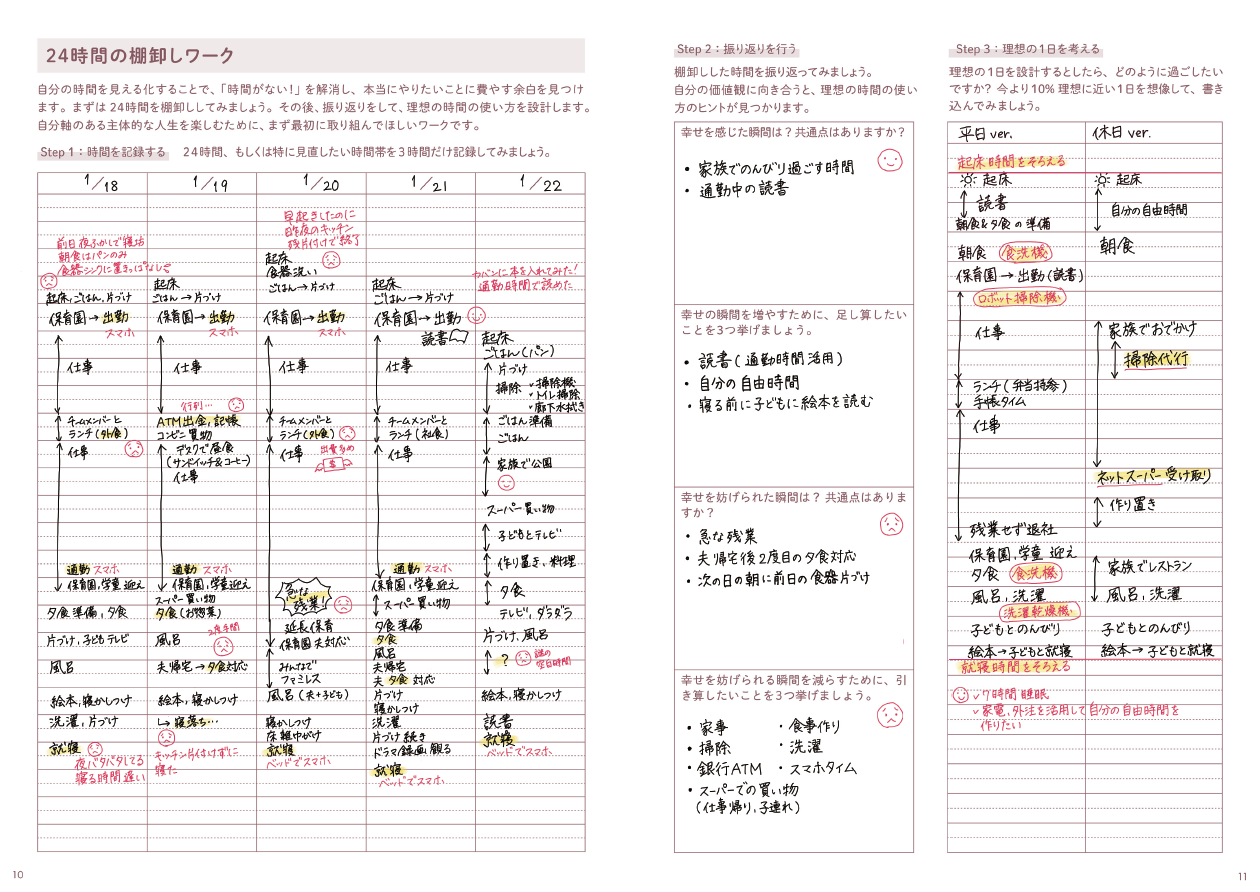 24時間の棚卸しワーク
自分の時間を見える化することで、「時間がない！」を解消し、本当にやりたいことに費やす余白を見つけ
ます。まずは 24時間を棚卸ししてみましょう。その後、振り返りをして、理想の時間の使い方を設計します。
自分軸のある主体的な人生を楽しむために、まず最初に取り組んでほしいワークです。
Step 1：時間を記録する
24時間、もしくは特に見直したい時間帯を3時間だけ記録してみましょう。
1/18
前日夜ふかしで寝坊
朝食はパンのみ
食器シンクに置きっぱなし
起床,ごはん,片づけ
保育園→出勤
スマホ
仕事
チームメンバーと
ランチ(外食)
仕事
通勤 スマホ
保育園,学童 迎え
夕食 準備,夕食
片づけ,子どもテレビ
風呂
絵本,寝かしつけ
洗濯,片づけ
就寝
夜バタバタしてる
寝る時間遅い
1/19
起床
ごはん→片づけ
保育園→出勤
スマホ
仕事
行列…
ATM出金,記帳
コンビニ買物
デスクで昼食
(サンドイッチ&コーヒー)
仕事
通勤 スマホ
保育園,学童迎え
スーパー買い物
夕食(お惣菜)
2度手間
風呂
夫帰宅→夕食対応
絵本,寝かしつけ
↳寝落ち…
キッチン片付けずに
寝た
1/20
早起きしたのに
昨夜のキッチン
残片付けで終了
起床
食器洗い
ごはん→片づけ
保育園→出勤
スマホ
仕事
チームメンバーと
ランチ(外食)
仕事
出費多め
急な
残業!
延長保育
保育園 夫対応
みんなで
ファミレス
風呂(夫+子ども)
寝かしつけ
床雑巾がけ
就寝
ベッドでスマホ
1/21
起床
ごはん→片づけ
保育園→出勤
読書
仕事
チームメンバーと
ランチ(社食)
仕事
通勤 スマホ
保育園,学童迎え
スーパー買い物
夕食準備
夕食
風呂
夫帰宅
夫 夕食 対応
片づけ
寝かしつけ
洗濯
片づけ続き
ドラマ録画 観る
就寝
ベッドでスマホ
1/22
カバンに本を入れてみた!
通勤時間で読めた
起床
ごはん(パン)
片づけ
掃除
✓掃除機
✓トイレ掃除
✓廊下水拭き
ごはん準備
ごはん
家族で公園
スーパー買い物
子どもとテレビ
作り置き,料理
夕食
テレビ,ダラダラ
片づけ,風呂
?
謎の
空白時間
絵本,寝かしつけ
読書
就寝
ベッドでスマホ
10
Step 2：振り返りを行う
棚卸しした時間を振り返ってみましょう。
自分の価値観に向き合うと、理想の時間の使い
方のヒントが見つかります。
幸せを感じた瞬間は？共通点はありますか？
• 家族でのんびり過ごす時間
• 通勤中の読書
幸せの瞬間を増やすために、足し算したい
ことを3つ挙げましょう。
• 読書(通勤時間活用)
• 自分の自由時間
• 寝る前に子どもに絵本を読む
幸せを妨げられた瞬間は？ 共通点はありま
すか？
• 急な残業
• 夫帰宅後2度目の夕食対応
• 次の日の朝に前日の食器片づけ
幸せを妨げられる瞬間を減らすために、引
き算したいことを3つ挙げましょう。
• 家事
• 食事作り
• 掃除
• 洗濯
• 銀行ATM
• スマホタイム
• スーパーでの買い物
(仕事帰り,子連れ)
Step 3：理想の1日を考える
理想の1日を設計するとしたら、どのように過ごしたい
ですか？ 今より10% 理想に近い1日を想像して、書き
込んでみましょう。
平日 ver.
起床時間をそろえる
起床
読書
朝食&夕食の準備
朝食 食洗機
保育園→出勤(読書)
ロボット掃除機
仕事
ランチ(弁当持参)
手帳タイム
仕事
残業せず退社
保育園,学童 迎え
夕食 食洗機
風呂,洗濯
洗濯乾燥機
子どもとのんびり
絵本→子どもと就寝
就寝時間をそろえる
✓7時間睡眠
✓家電,外注を活用して自分の自由時間を
作りたい
休日 ver.
起床
自分の自由時間
朝食
家族でおでかけ
掃除代行
ネットスーパー受け取り
作り置き
家族でレストラン
風呂,洗濯
子どもとのんびり
絵本→子どもと就寝
11